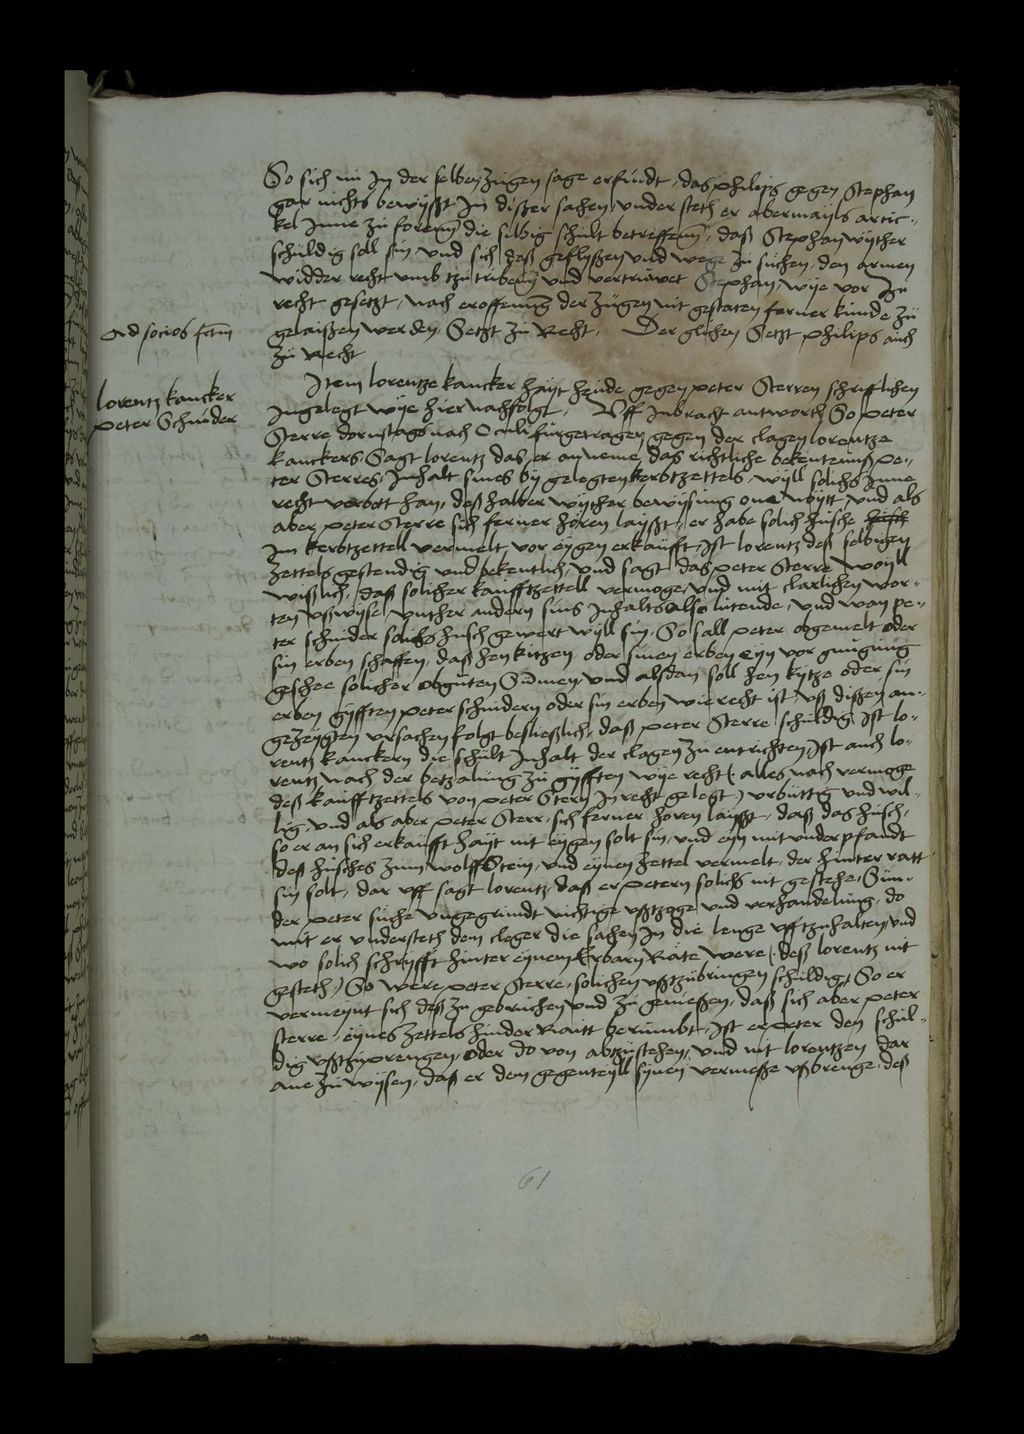 So sich nü In der selben zügen sage erfündt, das philips gegen Stephan
gar nichts bewyßt In dißer sachen, understeth er abermayls artic-
kel Inne zu foren die selbig schült betreffenn, daß Stephan wyther
schüldig soll sin, und sich deß geflyßen und wege zu suchen, den armen
widder recht umb tzutriben und vertruwet Stephan, wye vor Zu
recht gesetzt, nach eroffenung der zügen nit gestaten ferner künde zü
Ad socios
gelaißen werden, Setzt zu Recht, Der glichen Setzt philips auch
zü Recht
Lorentz kancker
peter Schnider
Item lorentze kancker hayt heude gegen peter Sterren schrifftlichen
Ingelegt wye hier nachfolgt, Uff Inbracht antworth So peter
Sterre dornstags nach Oculi fürgetragen gegen der clagen lorentze
kanckers, Sagt lorentz das er anneme, das richtliche bekentenüß pe-
ter Sterres, Inhalt sines by gelegten kerbtzettels, wyll solichs Inne
recht verbott han, deßhalber wyther bewysung one noytt, und als
aber peter Sterre sich ferner hören layßt, er habe solich husche
Im kerbtzettell vermelt, vor eygen erkaufft, Ist lorentz deß selbigen
zettels gestendig und bekentlich, und sagt das peter Sterre woyll
wißlich, daß solicher kaufftzettell vermoge und mit clarlichen wor-
ten ußwyse, unther andern sins Inhalts also lutende, und wan pe-
ter schnider solichs husch gewert wyll sin, So sall peter obgemelt oder
sin erben schaffen, daß hen kitzen oder sinen erben eyn vor gnugung
geschee solicher obguten Summen und alsdan soll hen kytze oder sin
erben gyfften peter schnidern oder sin erben wie recht ist, uß dißen an-
gezeygten ursachen folgt besließlich, daß peter Sterre schüldig Ist lo-
rentz kanckern die schült Inhalt der clagen zu entrichten, Ist auch lo-
rentz nach der betzalung zu gyfften wye recht (alles nach vermoge
deß kaufftzettels von peter Stern In recht gelegt) urbüttig und wil-
lig, und als aber peter Sterr, sich ferner horen layßt, daß das husch,
so er an sich erkaufft hayt nit eygen solt sin, und eyn mit underpfandt
deß husches zum wolff Stein, und eynen zettel vermelt, der hinter ratt
sin solt, dar uff sagt lorentz, daß er petern solichs nit gestehe, Sun-
der peter suche ungegrundt nichtige ußtzoge und verhandelung, do
mit er understeth dem cleger die sachen In die lenge uffzuhalten, und
wo solich schrifft hinter eynem Erbarn Rate were (deß lorentz nit
gesteth) So were peter Sterre, solichen ußtzubringen schüldig, So er
vermeynt sich deß zu gebruchen und zu genießen, daß sich aber peter
sterre, eynes zettels hinder Raitt berumbt, Ist er peter den schul-
dig ußtzuprengen, oder do von abtzustehen, und nit lorentzen dar
ane zu wysen, daß er dem gegenteyll synen vermeße ußbrenge, deß
61